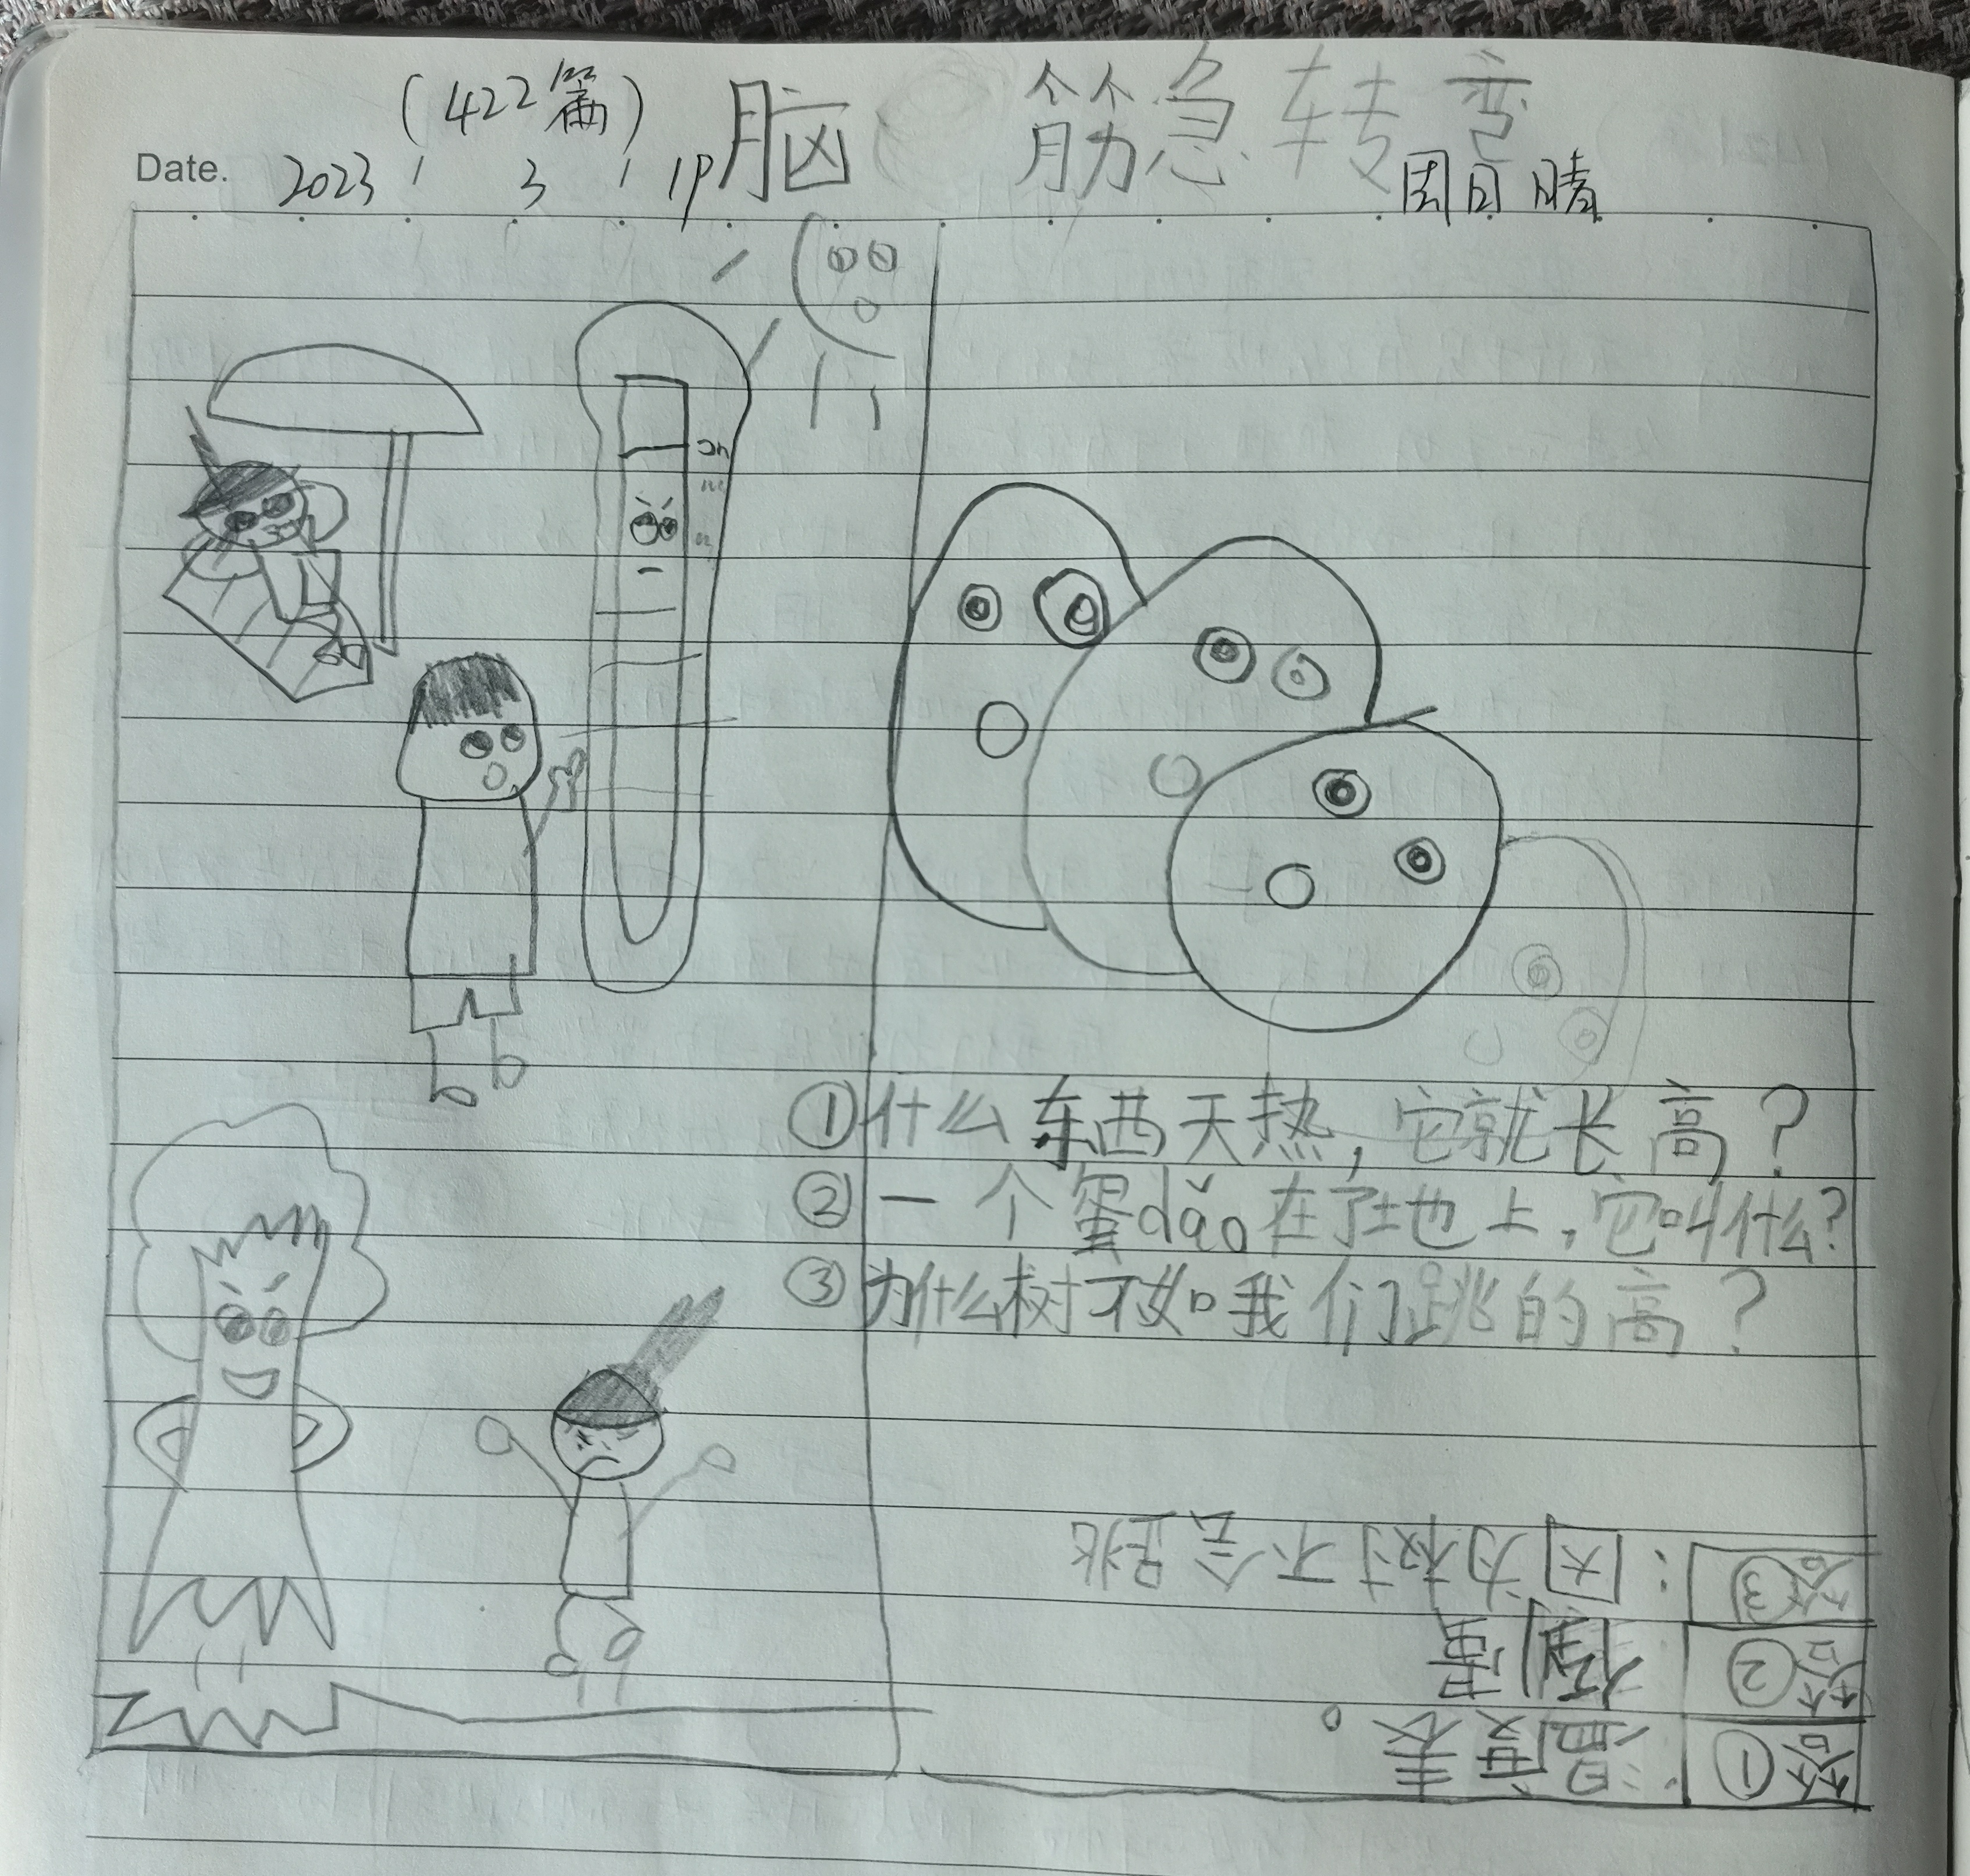 (422篇) 脑筋急转弯
Date. 2023 / 3 / 19 周日 晴
①什么东西天热，它就长高？
②一个蛋dǎo在了土也上，它叫什么？
③为什么树不如我们跳的高？
答①：温度表。
答②：倒蛋
答③：因为树不会跳